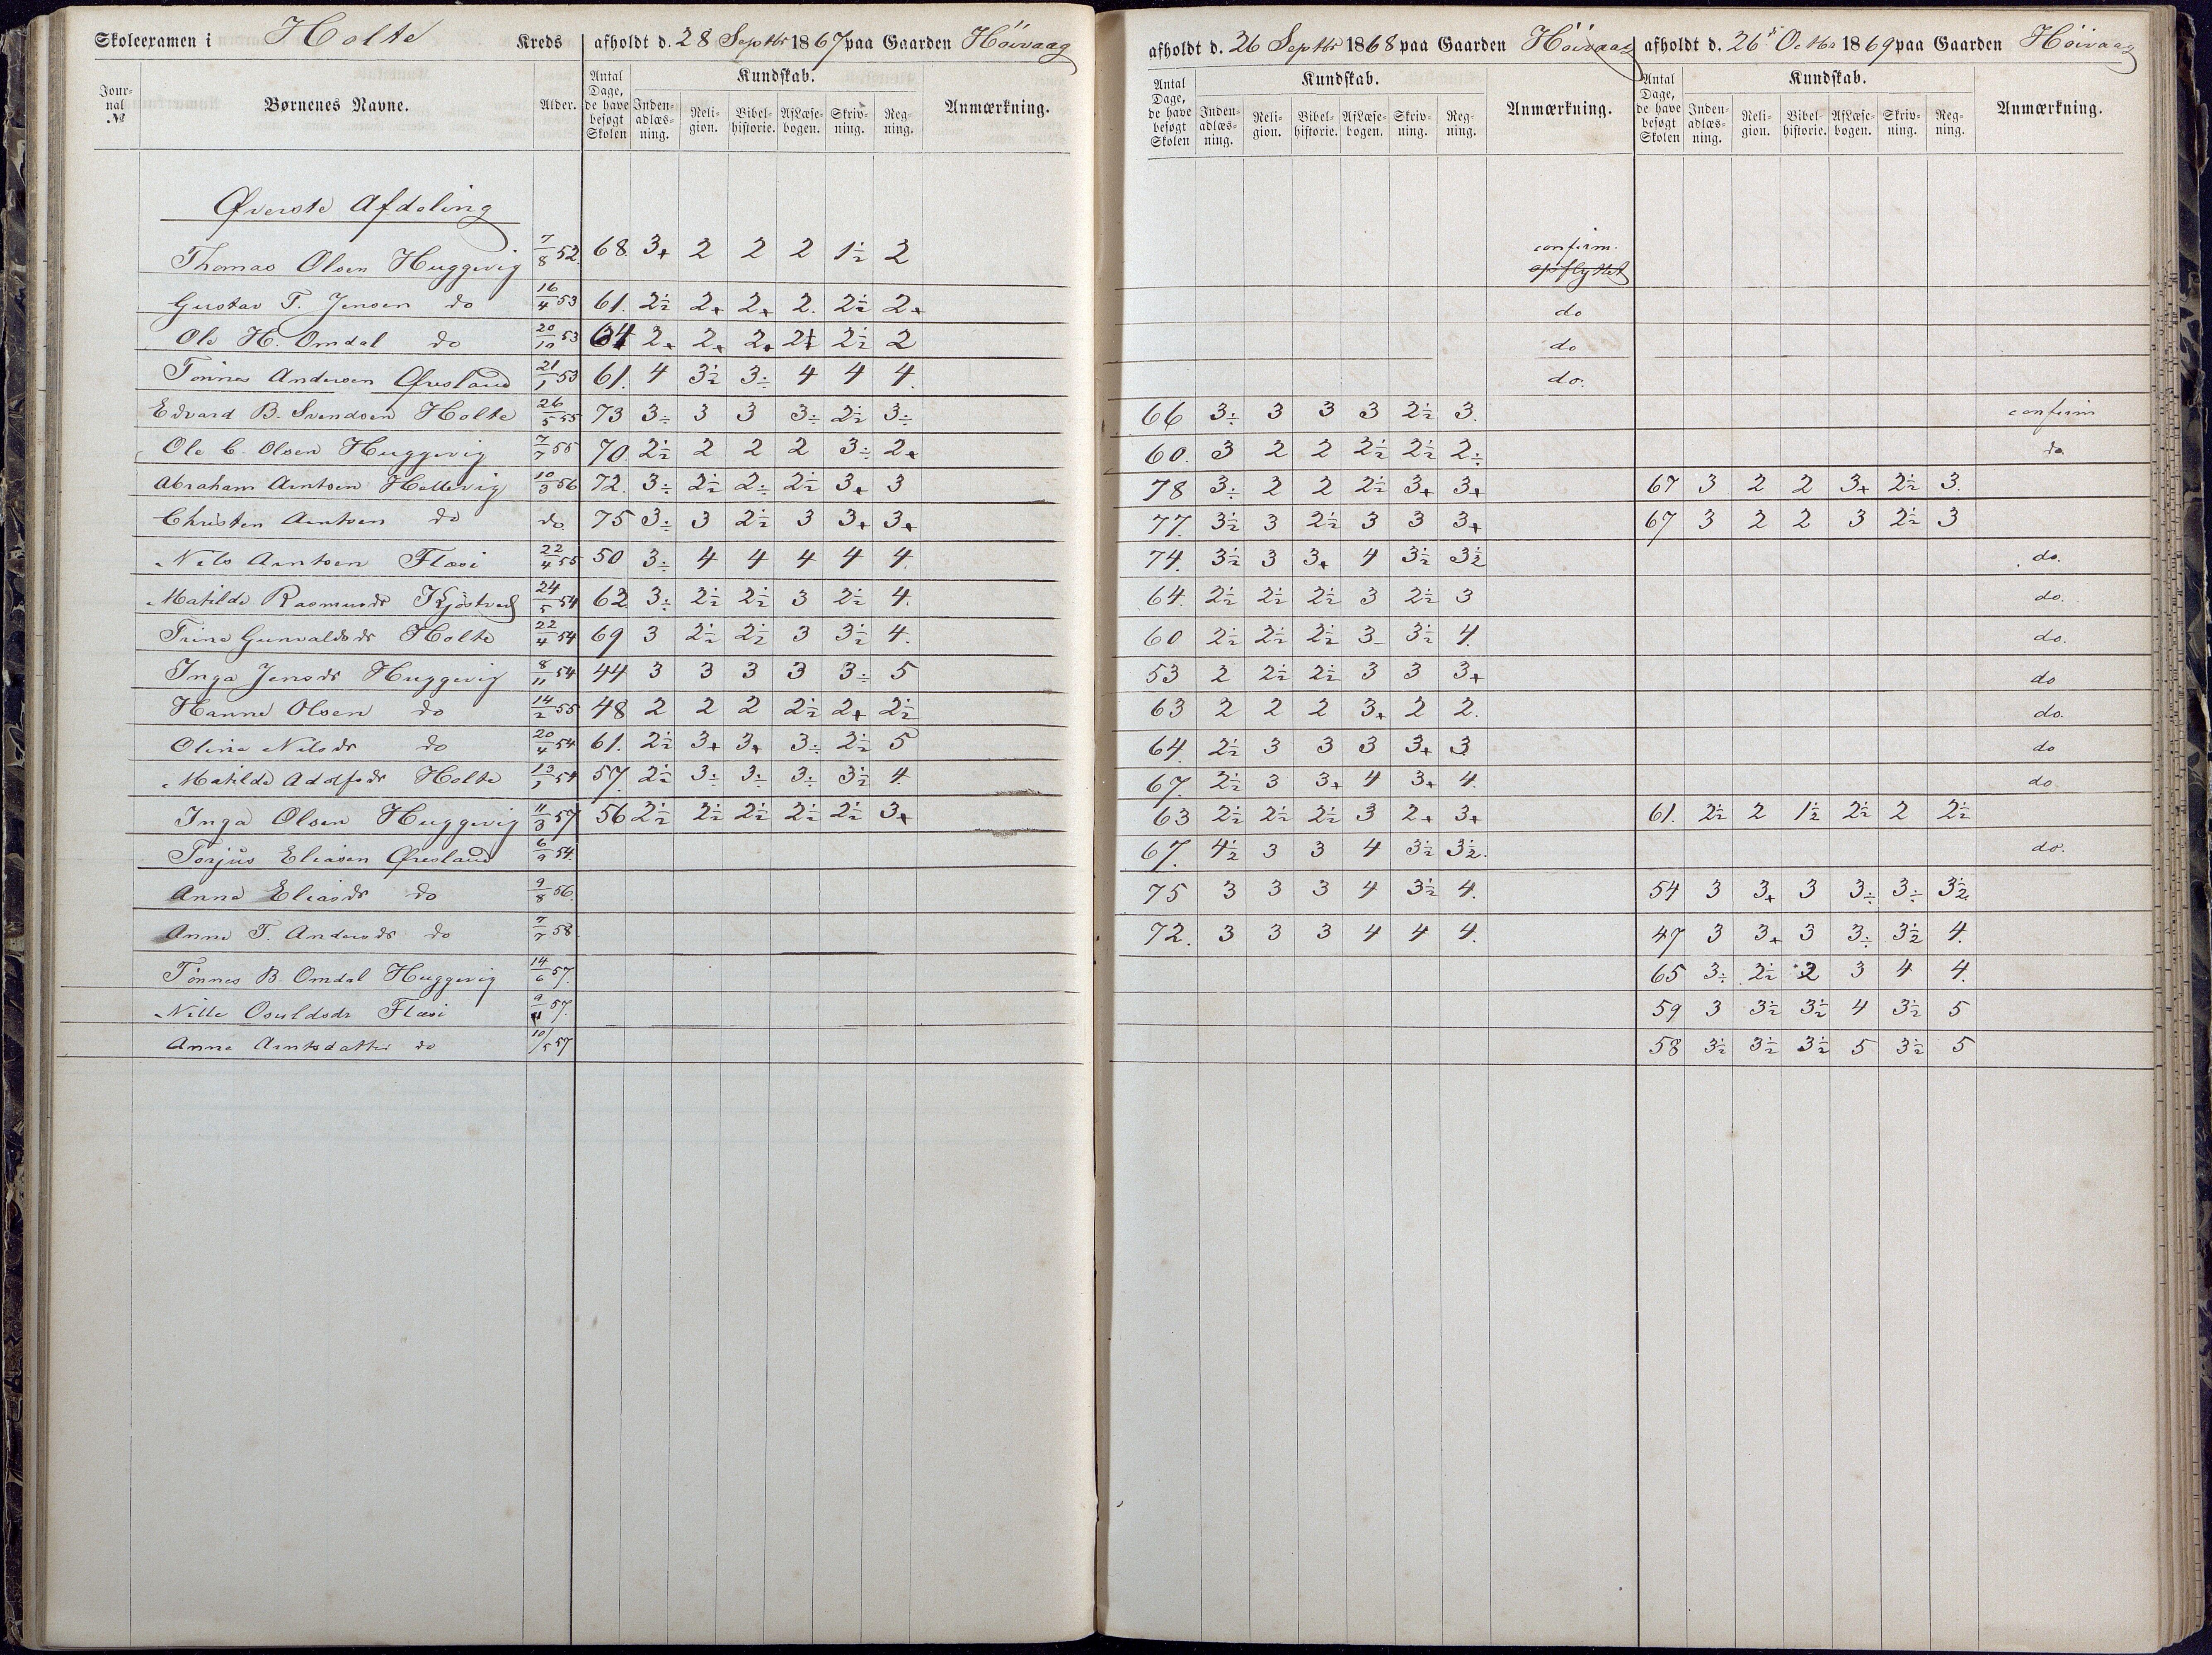 Skoleexamen i Holte Kreds afholdt d. 28 Septbr 1867 paa Gaarden Höivaag afholdt d. 26 Septbr 1868 paa Gaarden Höivaag afholdt d. 26 Octbr 1869 paa Gaarden Höivaag
Jour-nal № Børnenes Navne. Alder. Antal Dage, de have besøgt Skolen Kundskab. Inden-adlæs-ning. Reli-gion. Bibel-historie. Af Læse-bogen. Skriv-ning. Reg-ning. Anmærkning. Antal Dage, de have besøgt Skolen Kundskab. Inden-adlæs-ning. Reli-gion. Bibel-historie. Af Læse-bogen. Skriv-ning. Reg-ning. Anmærkning. Antal Dage, de have besøgt Skolen Kundskab. Inden-adlæs-ning. Reli-gion. Bibel-historie. Af Læse-bogen. Skriv-ning. Reg-ning. Anmærkning.
Øverste Afdeling
Thomas Olsen Huggevig 7/8 52. 68 3+ 2 2 2 1½ 2 confirm. opflyttet
Gustav T. Jensen do 16/4 53 61. 2½ 2+ 2+ 2. 2½ 2+ do
Ole H. Omdal do 20/10 53 64 2+ 2+ 2+ 2½ 2½ 2 do
Tönnes Andersen Øresland 21/1 53 61. 4 3½ 3÷ 4 4 4. do.
Edvard B. Svendsen Holte 26/5 55 73 3÷ 3 3 3÷ 2½ 3÷ 66 3÷ 3 3 3 2½ 3. confirm
Ole C. Olsen Huggevig 7/7 55 70. 2½ 2 2 2 3÷ 2+ 60. 3 2 2 2½ 2½ 2÷ do
Abraham Arntsen Hellevig 10/3 56 72. 3÷ 2½ 2÷ 2½ 3+ 3 78 3÷ 2 2 2½ 3+ 3+ 67 3 2 2 3+ 2½ 3.
Christen Arntsen do do. 75 3÷ 3 2½ 3 3+ 3+ 77. 3½ 3 2½ 3 3 3+ 67 3 2 2 3 2½ 3
Nils Arntsen Flasi 22/4 55 50 3÷ 4 4 4 4 4. 74. 3½ 3 3+ 4 3½ 3½ do.
Matilde Rasmusdr Kjöstved 24/5 54 62. 3÷ 2½ 2½ 3 2½ 4. 64. 2½ 2½ 2½ 3 2½ 3 do.
Trine Gunvaldsdr Holte 22/4 54 69 3 2½ 2½ 3 3½ 4. 60 2½ 2½ 2½ 3 3½ 4. do.
Inga Jensdr Huggevig 8/11 54 44 3 3 3 3 3÷ 5 53 2 2½ 2½ 3 3 3+ do
Hanne Olsen do 14/2 55 48 2 2 2 2½ 2+ 2½ 63 2 2 2 3+ 2 2. do.
Oline Nilsdr do 20/4 54 61. 2½ 3+ 3+ 3÷ 2½ 5 64. 2½ 3 3 3 3+ 3 do
Matilde Adolfsdr Holte 13/1 54 57. 2½ 3÷ 3÷ 3÷ 3½ 4. 67. 2½ 3 3+ 4 3+ 4. do
Inga Olsen Huggevig 11/3 57 56 2½ 2½ 2½ 2½ 2½ 3+ 63 2½ 2½ 2½ 3 2+ 3+ 61. 2½ 2 1½ 2½ 2 2½
Torjus Eliasen Øresland 6/9 54. 67. 4½ 3 3 4 3½ 3½. do.
Anne Eliasdr do 9/8 56. 75 3 3 3 4 3½ 4. 54 3 3+ 3 3÷ 3÷ 3½
Anne T. Andersdr do 7/7 58. 72. 3 3 3 4 4 4. 47 3 3+ 3 3÷ 3½ 4.
Tönnes B. Omdal Huggevig 14/6 57. 65 3÷ 2½ 2 3 4 4.
Nille Osuldsdr Flasi 9/11 57. 59 3 3½ 3½ 4 3½ 5
Anne Arntsdatter do 10/5 57 58 3½ 3½ 3½ 5 3½ 5